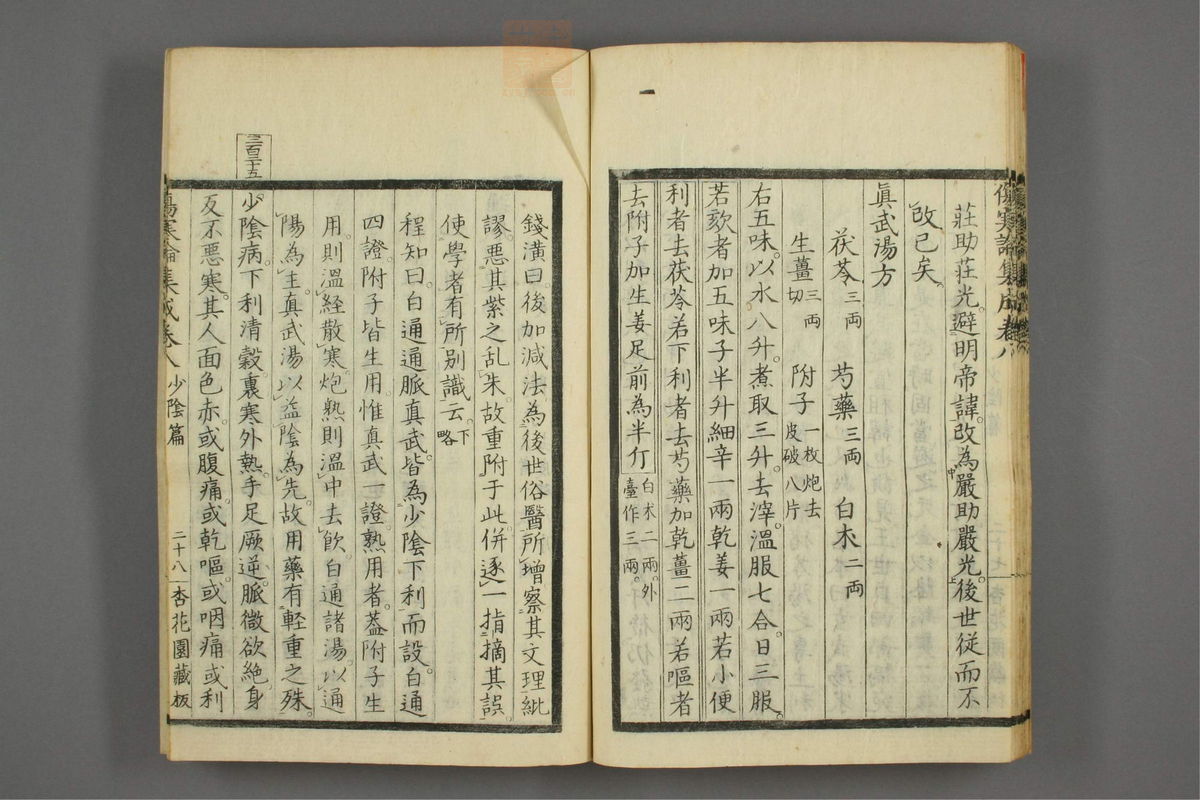 傷寒論集成卷八
莊助莊光。避明帝諱。改為嚴助嚴光。後世従而不
改已矣。
眞武湯方
茯苓三兩 芍藥三兩 白术二兩
生薑三兩切 附子一枚炮去皮破八片
右五味。以水八升。煮取三升。去滓。溫服七合。日三服。
若欬者加五味子半升細辛一兩乾姜一兩若小便
利者去茯苓若下利者去芍藥加乾薑二兩若嘔者
去附子加生姜足前為半斤白术二兩。外臺作三兩。
錢潢曰。後加減法。為後世俗醫所增察其文理紕
謬。惡其紫之亂朱。故重附于此。併逐一指摘其誤。
使學者有所別識云。下略
程知曰。白通通脈真武。皆為少陰下利而設。白通
四證。附子皆生用。惟真武一證。熟用者。蓋附子生
用則溫経散寒。炮熟則溫中去飲。白通諸湯。以通
陽為主。真武湯。以益陰為先。故用藥有軽重之殊。
三百二十五
少陰病。下利清穀。裏寒外熱。手足厥逆。脈微欲絶。身
反不惡寒。其人面色赤。或腹痛。或乾嘔。或咽痛。或利
傷寒論集成卷八 少陰篇 二十八 杏花園藏板